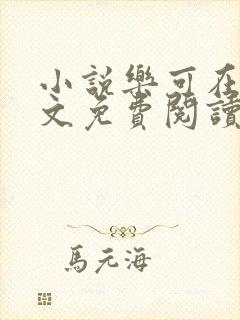 小說樂可在
文免費閱讀
馬元海